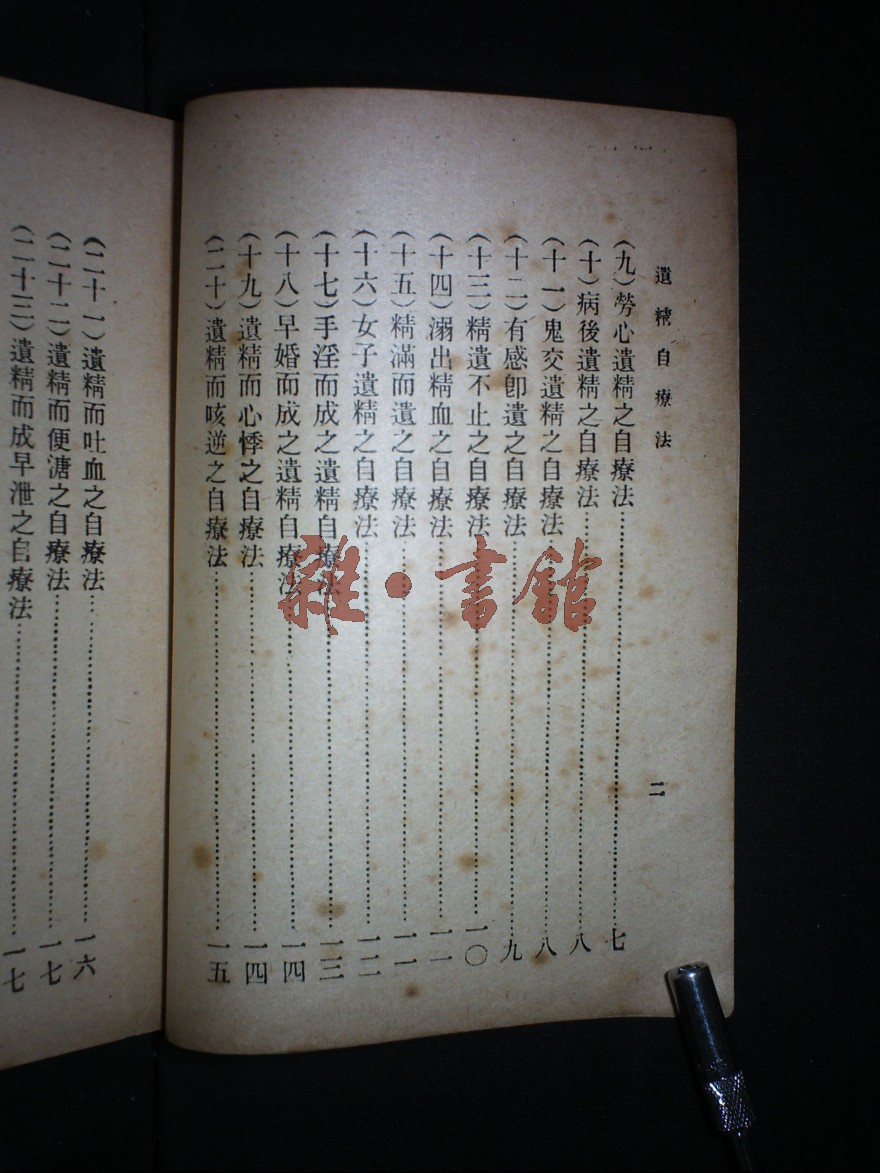 遺精自療法
二
(九)勞心遺精之自療法……七
(十)病後遺精之自療法……八
(十一)鬼交遺精之自療法……八
(十二)有感卽遺之自療法……九
(十三)精遺不止之自療法……一〇
(十四)溺出精血之自療法……一一
(十五)精滿而遺之自療法……一一
(十六)女子遺精之自療法……一二
(十七)手淫而成之遺精自療法……一三
(十八)早婚而成之遺精自療法……一四
(十九)遺精而心悸之自療法……一四
(二十)遺精而咳逆之自療法……一五
(二十一)遺精而吐血之自療法……一六
(二十二)遺精而便溏之自療法……一七
(二十三)遺精而成早泄之自療法……一七
雜·書館